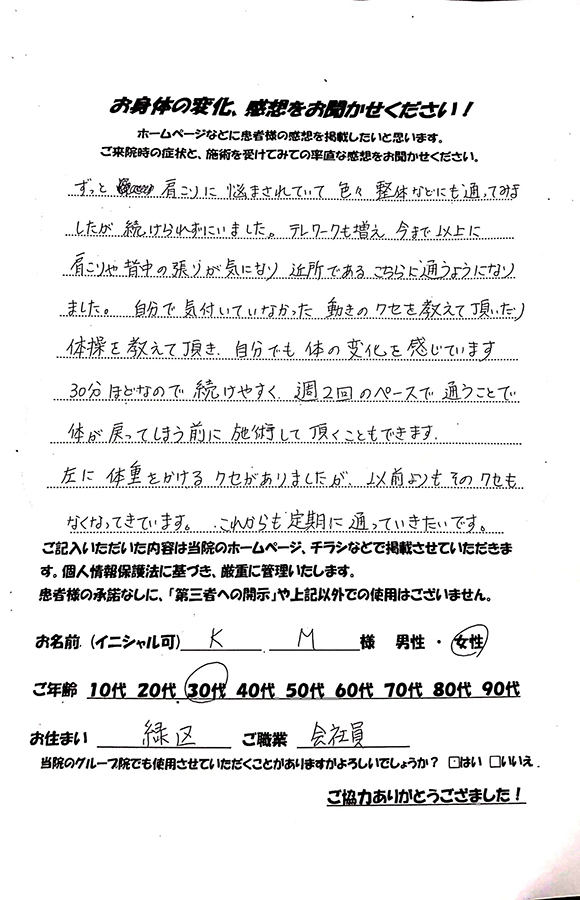 お身体の変化、感想をお聞かせください！
ホームページなどに患者様の感想を掲載したいと思います。
ご来院時の症状と、施術を受けてみての率直な感想をお聞かせください。
ずっと 肩こりに 悩まされていて 色々 整体などにも通ってみま
したが 続けられずにいました。 テレワークも増え 今まで以上に
肩こりや背中の張りが気になり 近所であるこちらに通うようになり
ました。 自分で気付いていなかった 動きのクセを教えて頂いたり
体操を教えて頂き、自分でも体の変化を感じています
30分ほどなので 続けやすく、週2回のペースで通うことで
体が戻ってしまう前に 施術して頂くこともできます。
左に 体重をかけるクセがありましたが、以前よりもそのクセも
なくなってきています。 これからも定期に通っていきたいです。
ご記入いただいた内容は当院のホームページ、チラシなどで掲載させていただきま
す。個人情報保護法に基づき、厳重に管理いたします。
患者様の承諾なしに、「第三者への開示」や上記以外での使用はございません。
お名前（イニシャル可） K M 様 男性 ・ 女性
ご年齢 10代 20代 30代 40代 50代 60代 70代 80代 90代
お住まい 緑区 ご職業 会社員
当院のグループ院でも使用させていただくことがありますがよろしいでしょうか？ ☐はい ☐いいえ.
ご協力ありがとうござました！